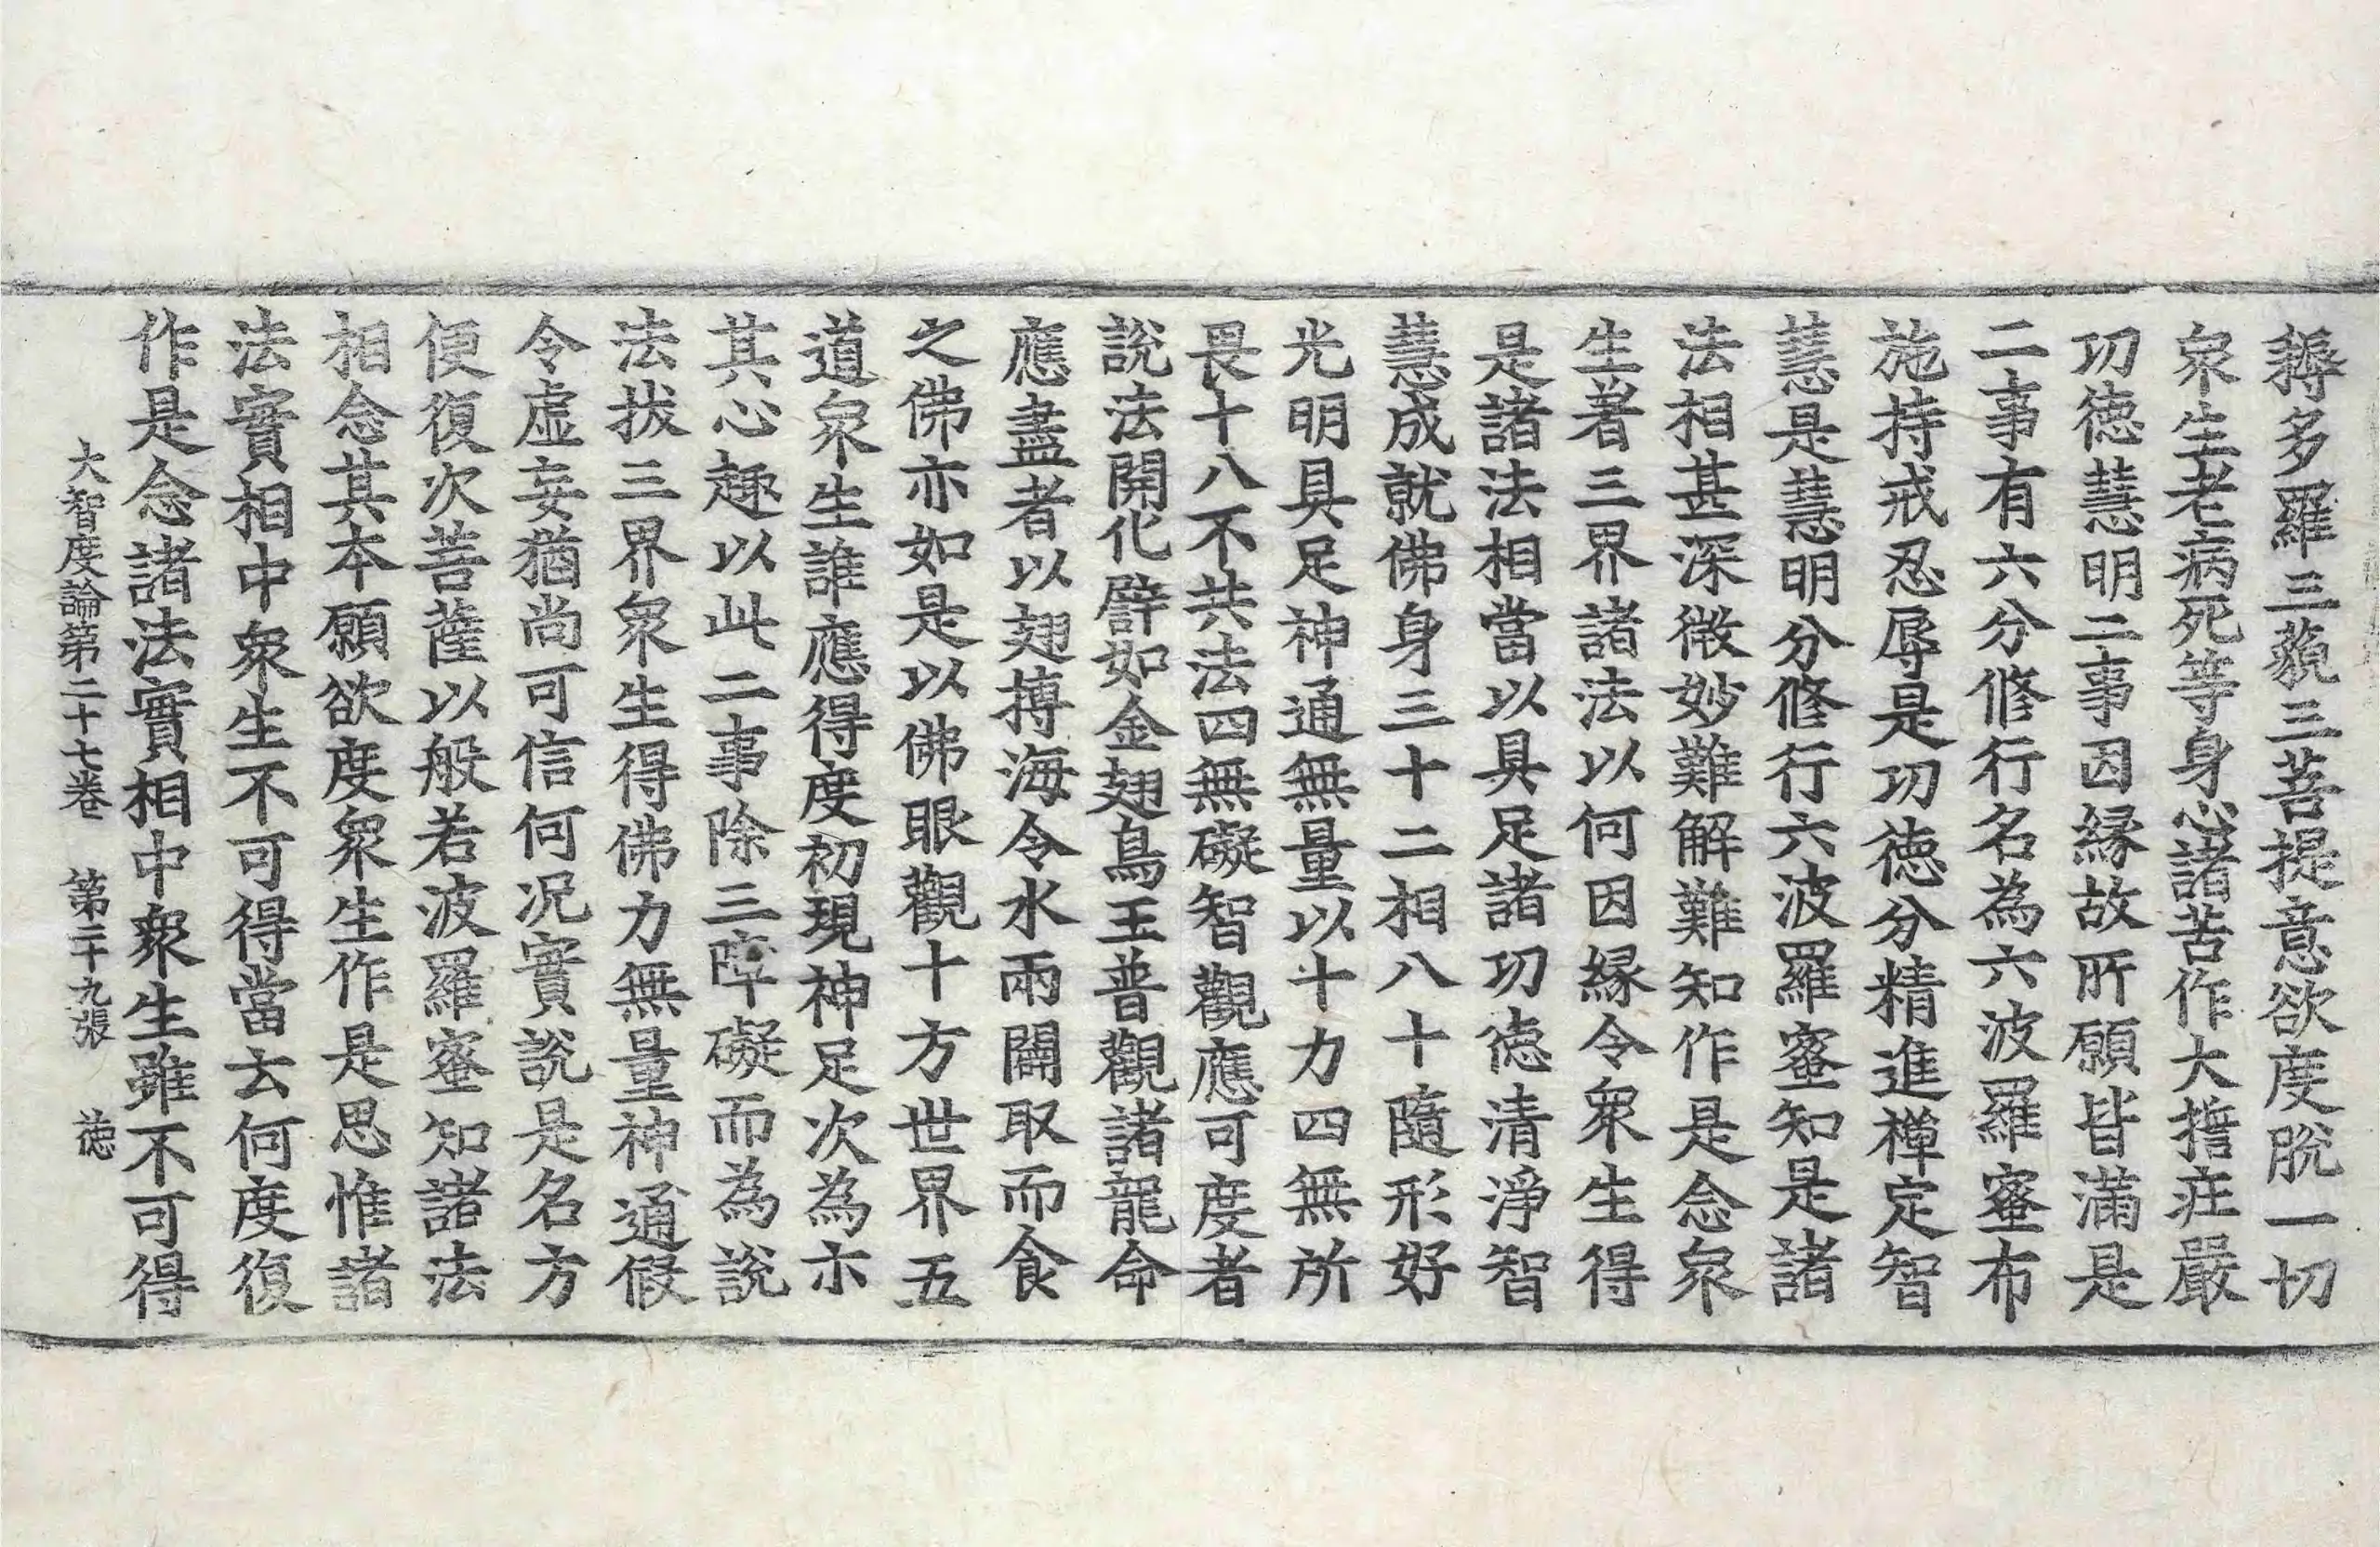 耨多羅三藐三菩提意欲度脫一切
衆生老病死等身心諸苦作大擔莊嚴
功德慧明二事因縁故所願皆滿是
二事有六分修行名為六波羅蜜布
施持戒忍辱是功德分精進禪定智
慧是慧明分修行六波羅蜜知是諸
法相甚深微妙難解難知作是念衆
生著三界諸法以何因縁令衆生得
是諸法相當以具足諸功德清淨智
慧成就佛身三十二相八十隨形好
光明具足神通無量以十力四無所
畏十八不共法四無礙智觀應可度者
說法開化譬如金翅鳥王普觀諸龍命
應盡者以翅搏海令水兩闢取而食
之佛亦如是以佛眼觀十方世界五
道衆生誰應得度初現神足次為示
其心趣以此二事除三障礙而為說
法拔三界衆生得佛力無量神通假
令虛妄猶尚可信何況實說是名方
便復次菩薩以般若波羅蜜知諸法
相念其本願欲度衆生作是思惟諸
法實相中衆生不可得當云何度復
作是念諸法實相中衆生雖不可得
大智度論第二十七卷 第二十九張 德